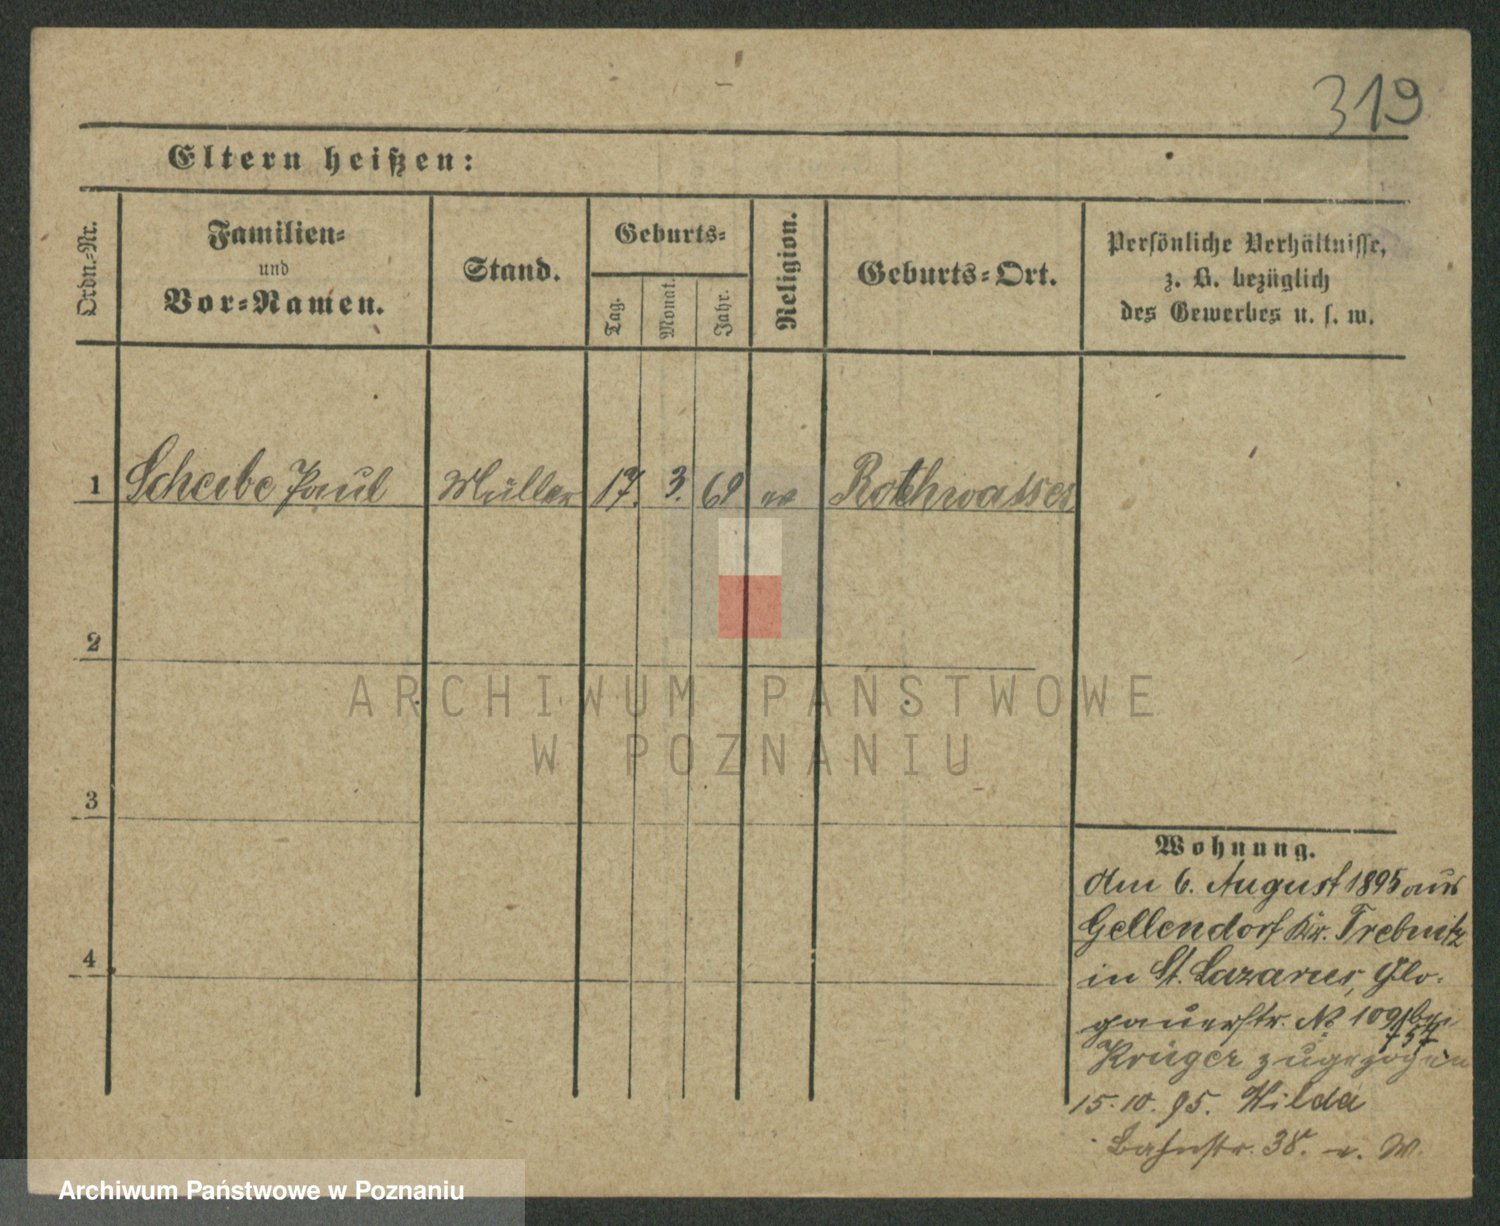 319
Eltern heißen:
Ordn.-Nr.
Familien-
und
Vor-Namen.
Stand.
Geburts-
Tag.
Monat.
Jahr.
Religion.
Geburts-Ort.
Persönliche Verhältnisse,
z. B. bezüglich
des Gewerbes u. s. w.
1 Scheibe Paul Müller 17. 3. 69 ev Rothwasser
2
ARCHIWUM PAŃSTWOWE
W POZNANIU
3
Wohnung.
Am 6. August 1895 aus
Gellendorf Kr. Trebnitz
in St. Lazarus, Glo-
gauerstr. No 109 bei
Krüger zugezogen
15.10.95. Wilda
Bahnstr. 38. v. W.
4
Archiwum Państwowe w Poznaniu